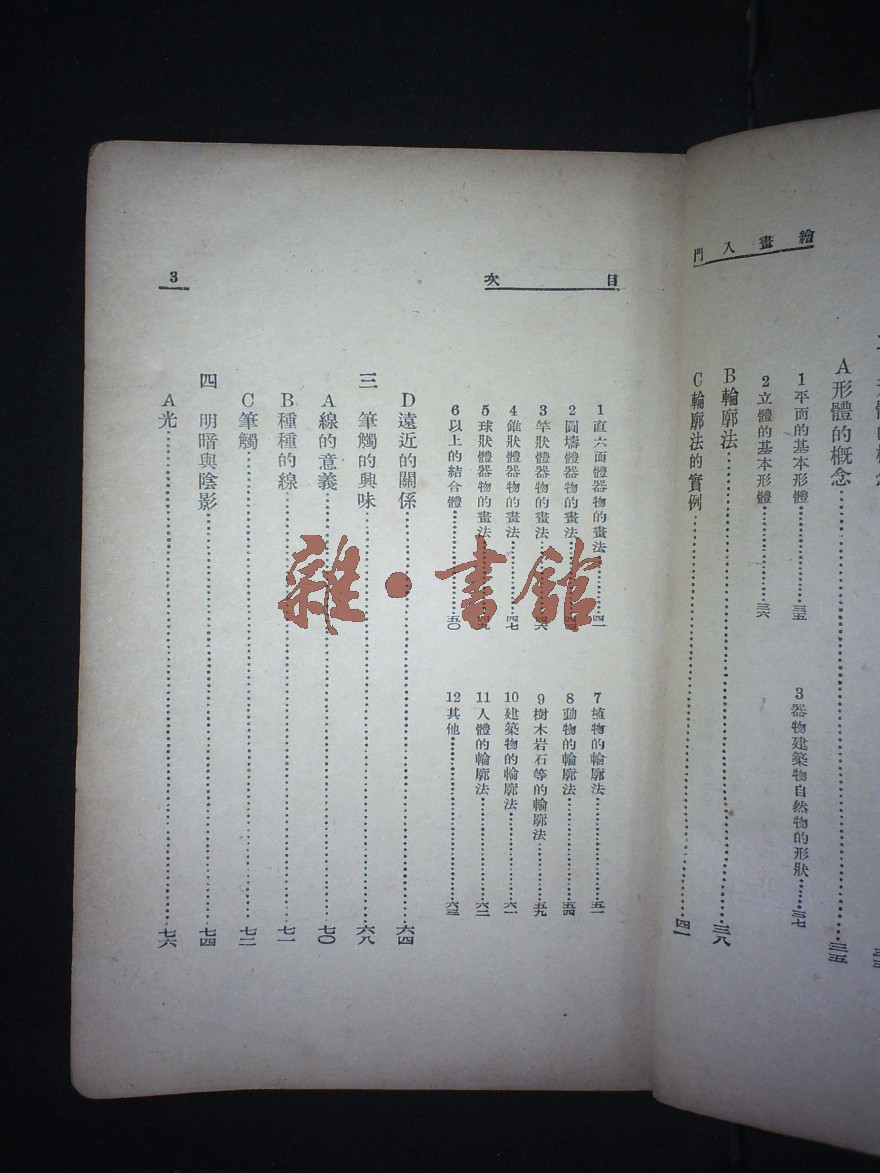 繪畫入門
A形體的概念……三五
1平面的基本形體……三五
3器物建築物自然物的形狀……三七
2立體的基本形體……三六
B輪廓法……三八
C輪廓法的實例……四一
目次
3
1直六面體器物的畫法……四一
7植物的輪廓法……五一
2圓壔體器物的畫法……
8動物的輪廓法……五四
3竿狀體器物的畫法……四六
9樹木岩石等的輪廓法……五九
4錐狀體器物的畫法……四七
10建築物的輪廓法……六一
5球狀體器物的畫法……四九
11人體的輪廓法……六二
6以上的結合體……五〇
12其他……六三
D遠近的關係……六四
三 筆觸的興味……六八
A線的意義……七〇
B種種的線……七一
C筆觸……七二
四 明暗與陰影……七四
A光……七六
雜·書館